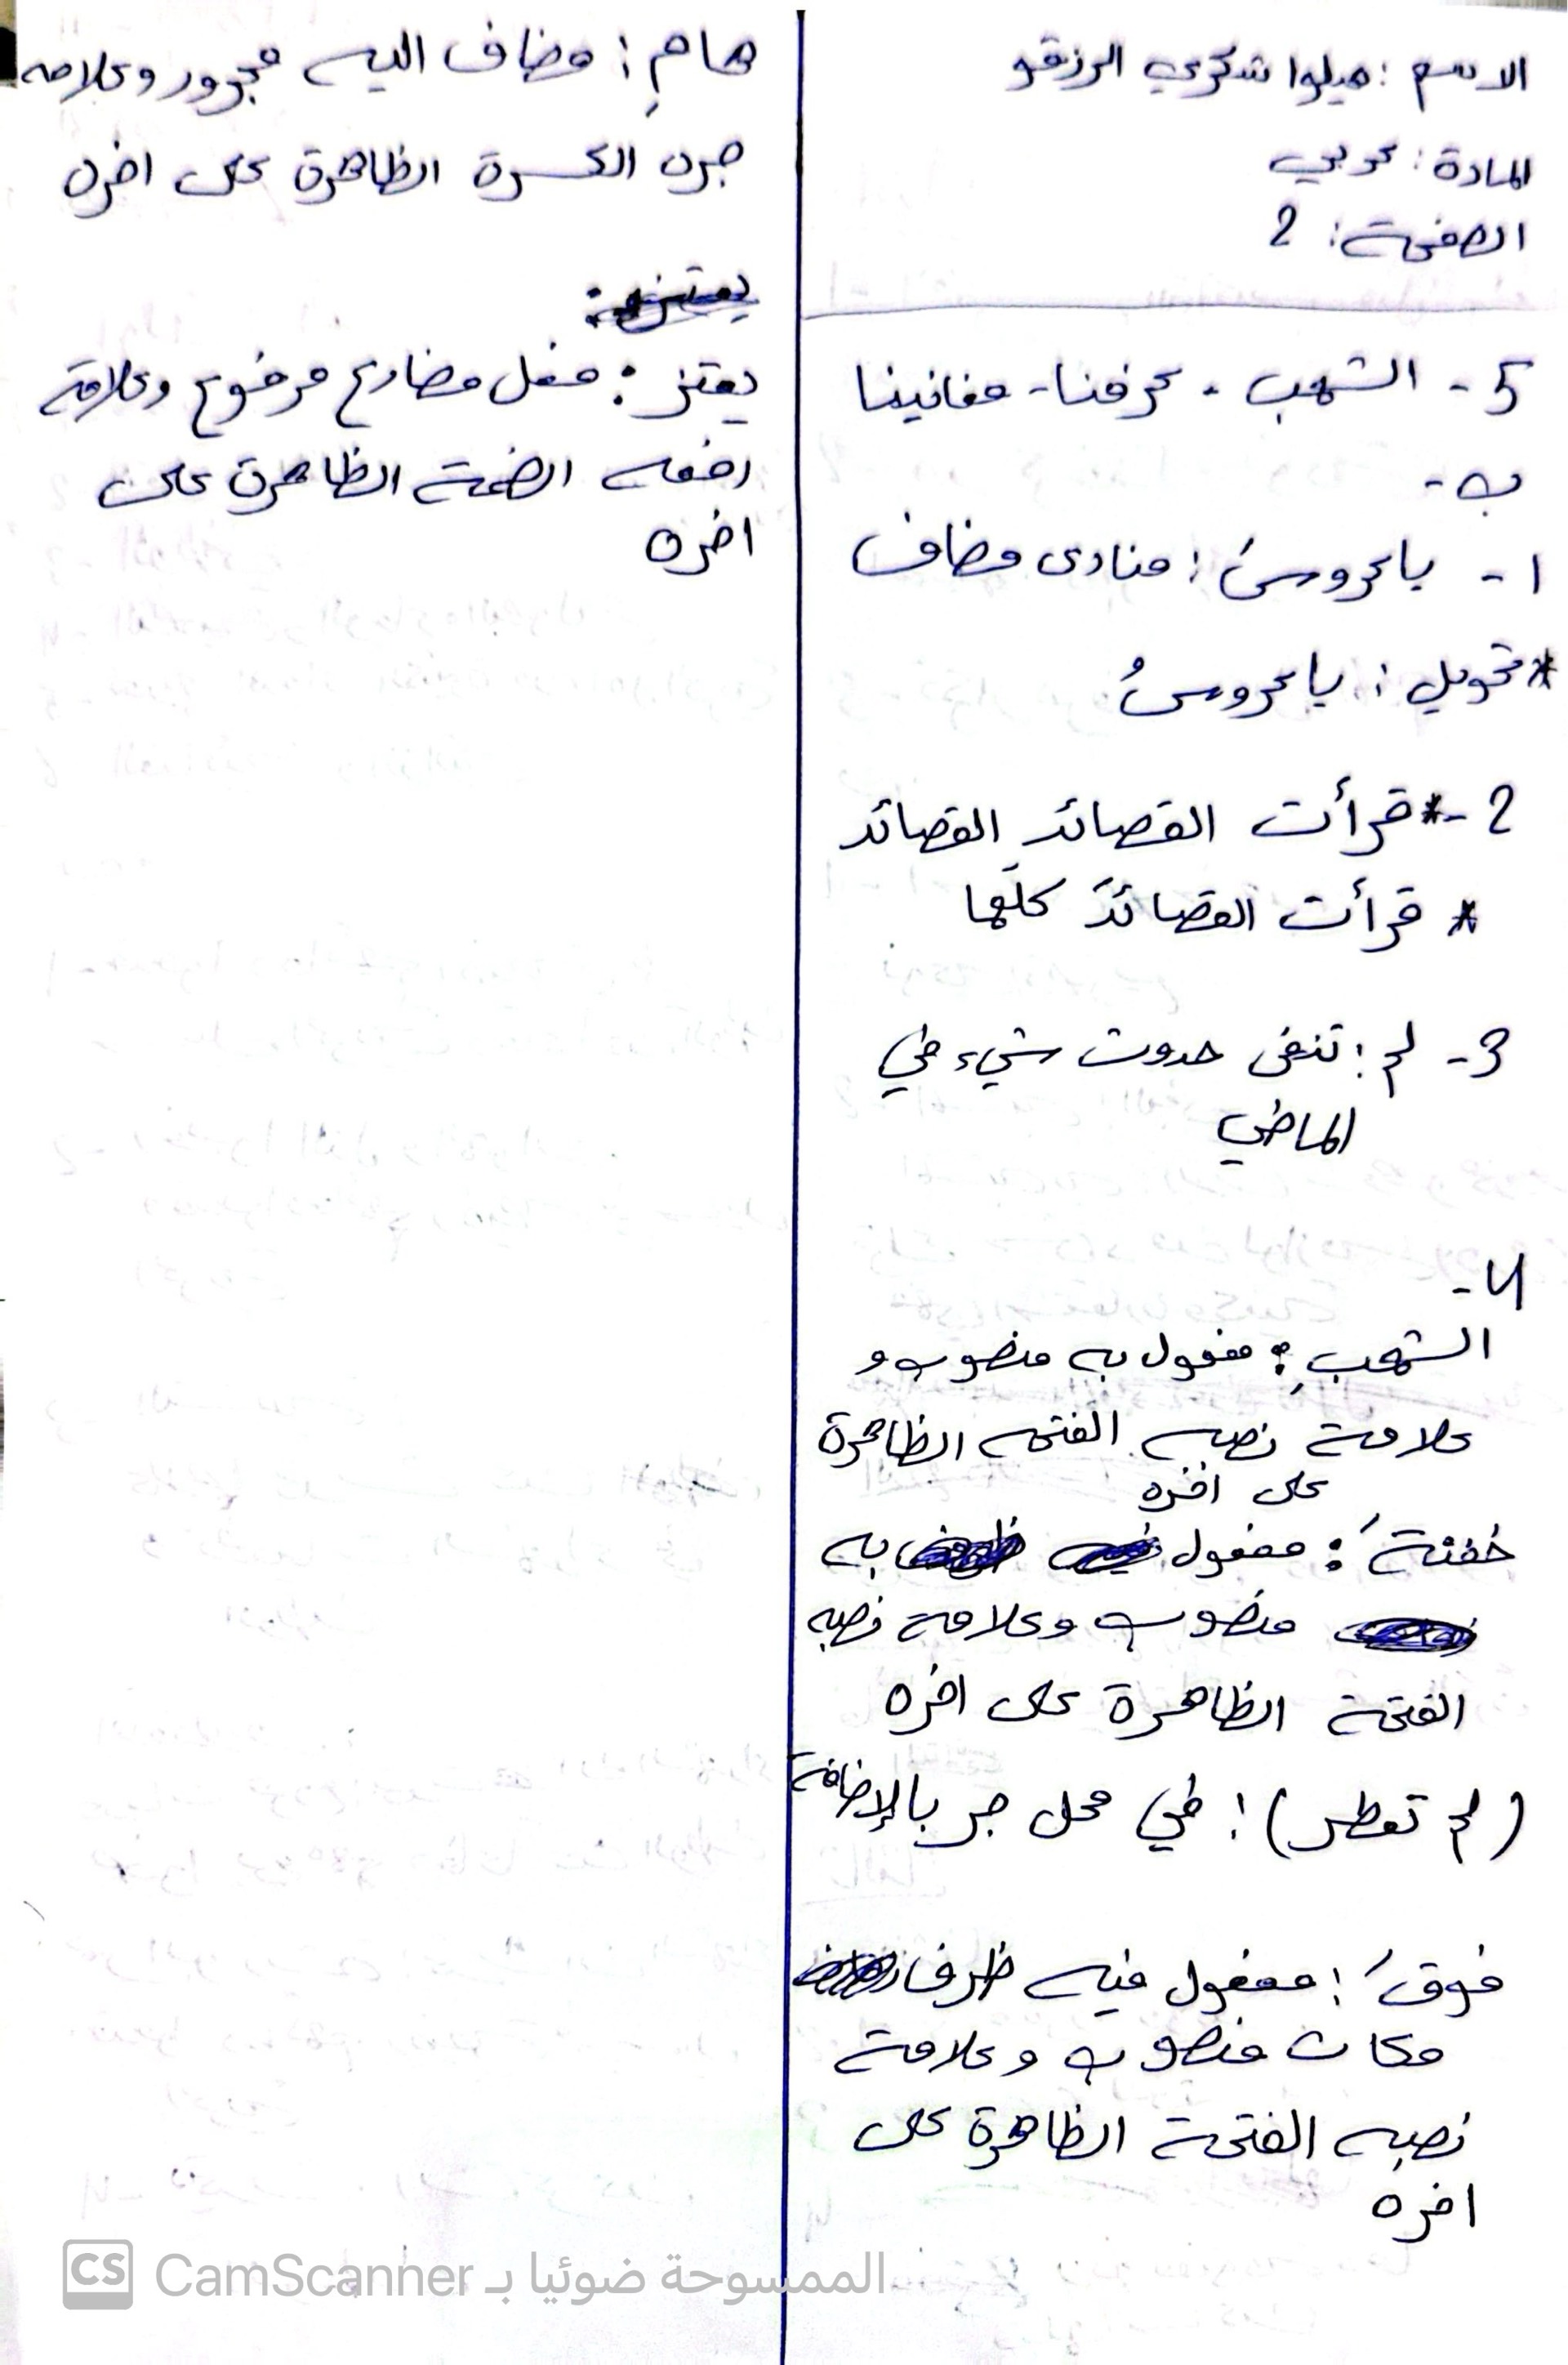 الاسم : ميلوا شكري الرزقو
المادة : عربي
الصفحة : 2
5 - الشهب - عرفنا - مغانينا
ب -
1 - يا عروسَ : منادى مضاف
* تحويل : يا عروسُ
2 - * قرأت القصائد القصائد
* قرأت القصائدَ كلَّها
3 - لم : تنفى حدوث شيء في
الماضي
4 -
الشهبِ : مفعول به منصوب و
علامة نصبه الفتحه الظاهرة
على اخره
خفنةَ : مفعول به
منصوب وعلامة نصبه
الفتحة الظاهرة على اخره
(لم تعطر) : في محل جر بالإضافة
فوقَ : مفعول فيه ظرف
مكان منصوب وعلامة
نصبه الفتحة الظاهرة على
اخره
هامِ : مضاف اليه مجرور وعلامه
جره الكسرة الظاهرة على اخره
يعتز :
يعتز : فعل مضارع مرفوع وعلامة
رفعه الضمة الظاهرة على
اخره
الممسوحة ضوئيا بـ CamScanner
CS